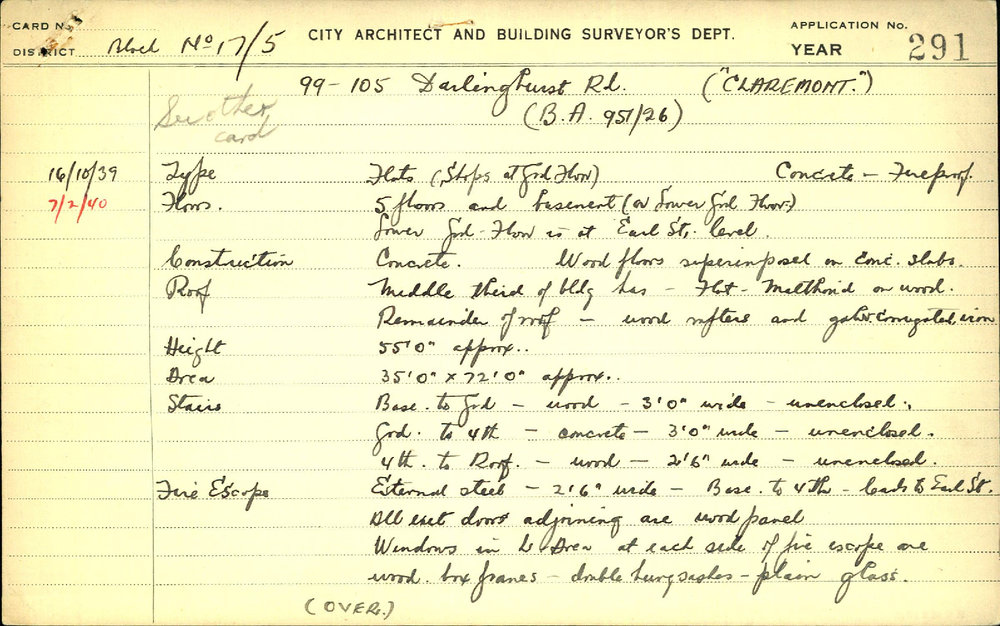 CARD No.
CITY ARCHITECT AND BUILDING SURVEYOR'S DEPT.
APPLICATION No.
DISTRICT Block No 17/5
YEAR 291
99-105 Darlinghurst Rd. ("CLAREMONT.")
See other card
(B.A. 951/26)
16/10/39 Type Flats (Shops at Grd Floor) Concrete - Fireproof.
7/2/40 Floors. 5 floors and basement (or Lower Grd Floor.)
Lower Grd-Floor is at Earl St. level.
Construction Concrete. Wood floors superimposed on Conc. slabs.
Roof Middle third of bldg has - Flat - Malthoid on wood.
Remainder of roof - wood rafters and galv. corrugated iron
Height 55'0" approx..
Area 35'0" x 72'0" approx..
Stairs Base. to Grd - wood - 3'0" wide - unenclosed.
Grd. to 4th - concrete - 3'0" wide - unenclosed.
4th. to Roof. - wood - 2'6" wide - unenclosed.
Fire Escape External steel - 2'6" wide - Base. to 4th - leads to Earl St.
All exit doors adjoining are wood panel
Windows in L. Area at each side of fire escape are
wood. box frames - double hung sashes - plain glass.
(OVER.)